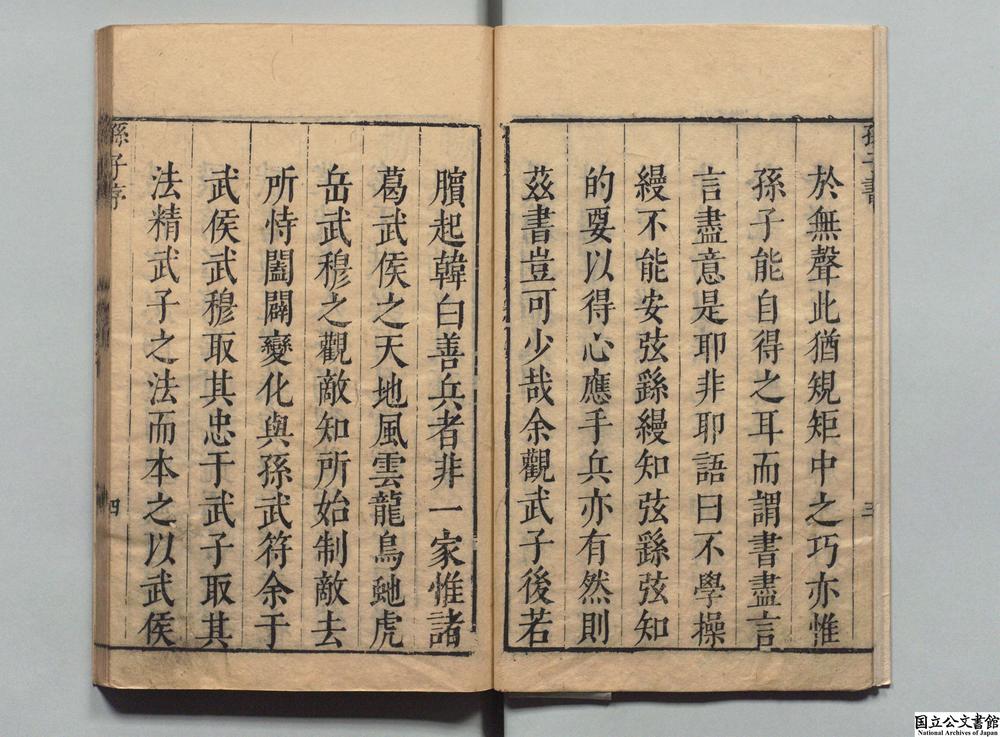 於無聲此猶規矩中之巧亦惟
孫子能自得之耳而謂書盡言
言盡意是耶非耶語曰不學操
縵不能安弦繇縵知弦繇弦知
的要以得心應手兵亦有然則
茲書豈可少哉余觀武子後若
臏起韓白善兵者非一家惟諸
葛武侯之天地風雲龍鳥虵虎
岳武穆之觀敵知所始制敵去
所恃闔闢變化與孫武符余于
武侯武穆取其忠于武子取其
法精武子之法而本之以武侯
孫子序
四
国立公文書館
National Archives of Japan